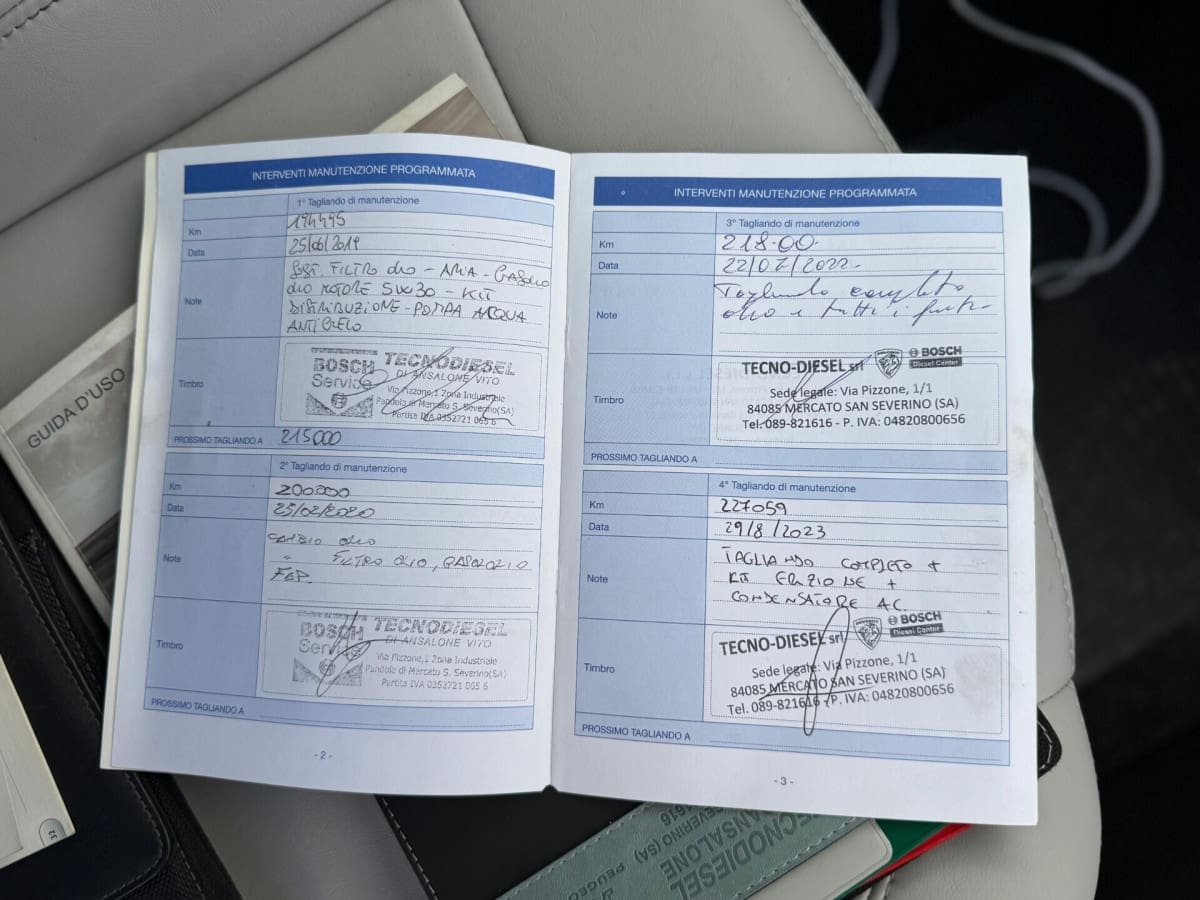 INTERVENTI MANUTENZIONE PROGRAMMATA
1° Tagliando di manutenzione
Km 194495
Data 25/06/2019
Note SOST. FILTRO OLIO - ARIA - GASOLIO
OLIO MOTORE 5W30 - KIT
DISTRIBUZIONE - POMPA ACQUA
ANTIGELO
Timbro
BOSCH Service
TECNODIESEL
DI ANSALONE VITO
Via Pizzone,1 Zona Industriale
Pandola di Mercato S. Severino(SA)
Partita IVA 0352721 065 6
PROSSIMO TAGLIANDO A 215000
2° Tagliando di manutenzione
Km 200000
Data 25/02/2020
Note CAMBIO OLIO
" FILTRO OLIO, GASOLIO
Timbro
BOSCH Service
TECNODIESEL
DI ANSALONE VITO
Via Pizzone,1 Zona Industriale
Pandola di Mercato S. Severino(SA)
Partita IVA 0352721 065 6
PROSSIMO TAGLIANDO A
- 2 -
INTERVENTI MANUTENZIONE PROGRAMMATA
3° Tagliando di manutenzione
Km 218.00.
Data 22/07/2022
Note Tagliando completo
olio e tutti i filtri
Timbro
TECNO-DIESEL srl BOSCH
Diesel Center
Sede legale: Via Pizzone, 1/1
84085 MERCATO SAN SEVERINO (SA)
Tel. 089-821616 - P. IVA: 04820800656
PROSSIMO TAGLIANDO A
4° Tagliando di manutenzione
Km 227059
Data 29/8/2023
Note TAGLIANDO COMPLETO +
KIT +
CONDENSATORE AC.
Timbro
TECNO-DIESEL srl BOSCH
Diesel Center
Sede legale: Via Pizzone, 1/1
84085 MERCATO SAN SEVERINO (SA)
Tel. 089-821616 - P. IVA: 04820800656
PROSSIMO TAGLIANDO A
- 3 -
GUIDA D'USO
32
TECNODIESEL
ANSALONE
SEVERINO (SA)
1616
PEUGEO